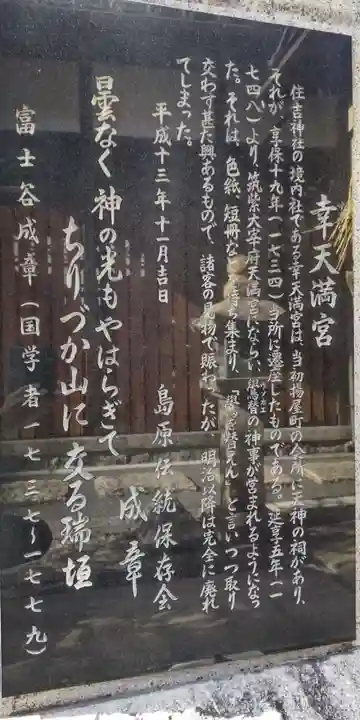 幸天満宮
住吉神社の境内社である幸天満宮は、当初揚屋町の会所に天神の祠があり、
それが、享保十九年(一七三四)当所に遷座したものである。延享五年(一
七四八)より、筑紫太宰府天満宮にならい、鷽替の神事が営まれるようになっ
た。それは、色紙、短冊など持ち集まり、替えんと言いつつ取り
交わす甚だ興あるもので、諸客の見物で賑わったが、明治以降は完全に廃れ
てしまった。
平成十三年十一月吉日
島原伝統保存会
曇なく神の光もやはらぎて
成章
ちりづか山に交る瑞垣
富士谷成章(国学者一七三七~一七七九)